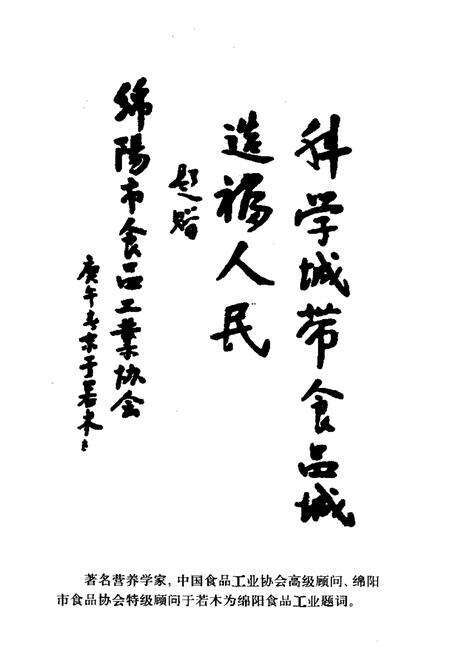 科学城带食品城
造福人民
题赠
綿陽市食品工業协会
庚午春京于若木
著名营养学家，中国食品工业协会高级顾问、绵阳
市食品协会特级顾问于若木为绵阳食品工业题词。